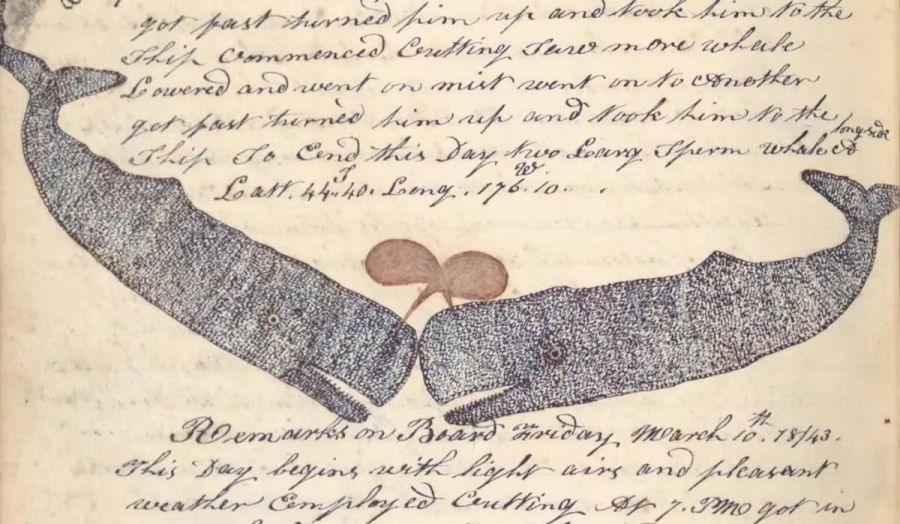 got fast turned him up and took him to the
Ship Commenced Cutting Saw more whale
Lowered and went on mist went on to Another
got fast turned him up and took him to the
long side
Ship So Ends this Day two Larg Sperm whale
Latt. 44..40. Long. 176..10. W
Remarks on Board Friday March 10th. 1843.
This Day begins with light airs and pleasant
weather Employed Cutting At 7. PM got in